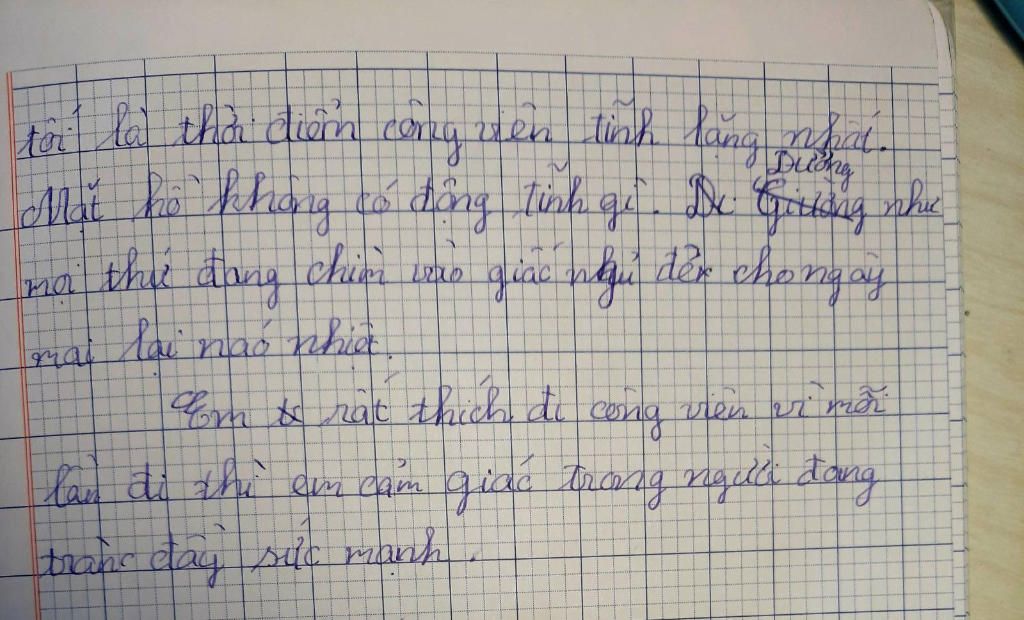 tối là thời điểm công viên tĩnh lặng nhất.
Mặt hồ không có động tĩnh gì. Dường như
mọi thứ đang chìm vào giấc ngủ để cho ngày
mai lại naó nhiệt.
Em rất thích đi công viên vì mỗi
lần đi thì em cảm giác trong người đang
tràn đầy sức mạnh.